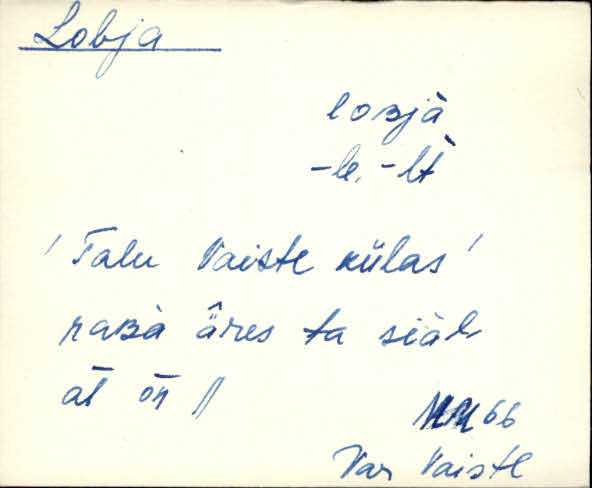 Lobja
loʙjà
-le, -lt̀
'Talu Vaiste külas'
raʙà ä̂res ta siäl
āt ōn //
66
Var Vaiste